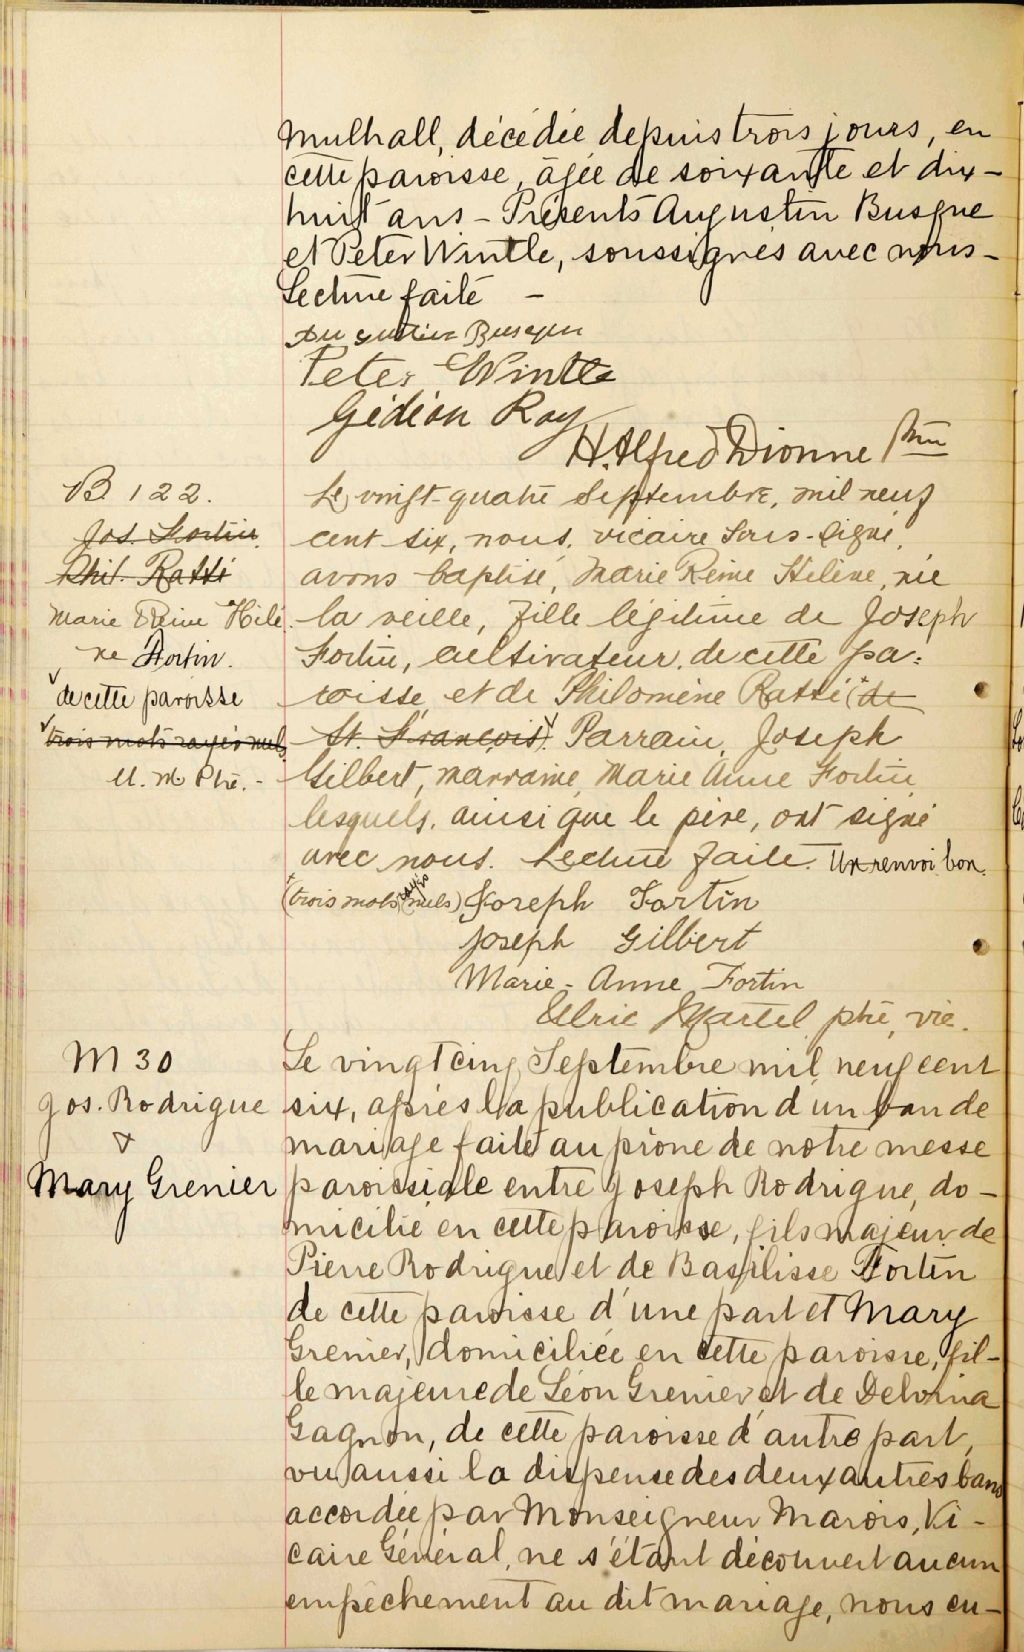 Mulhall, décédée depuis trois jours, en
cette paroisse, âgée de soixante et dix-
huit ans - Présents Augustin Busque
et Peter Wintle, soussignés avec nous -
Lecture faite -
Augustin Busque
Peter Wintle
Gédéon Roy
H. Alfred Dionne Ptre
B. 122.
Jos. Fortin
Phil. Ratté
Marie Reine Hélè
ne Fortin.
de cette paroisse
trois mots rayés nuls
U. M. Ptre. -
Le vingt-quatre Septembre, mil neuf
cent six, nous, vicaire Sous-signé,
avons baptisé, Marie Reine Hélène, née
la veille, fille légitime de Joseph
Fortin, cultivateur, de cette pa=
roisse et de Philomène Ratté (de
St. François). Parrain, Joseph
Gilbert, marraine, Marie Anne Fortin
lesquels, ainsi que le père, ont signé
avec nous. Lecture faite. Un renvoi bon.
(trois mots rayés nuls) Joseph Fortin
Joseph Gilbert
Marie-Anne Fortin
Ulric Martel ptre, vic.
M 30
Jos. Rodrigue
&
Mary Grenier
Le vingt cinq Septembre mil neuf cent
six, après la publication d'un ban de
mariage faite au prône de notre messe
paroissiale entre Joseph Rodrigue, do-
micilié en cette paroisse, fils majeur de
Pierre Rodrigue et de Basilisse Fortin
de cette paroisse d'une part et Mary
Grenier, domiciliée en cette paroisse, fil-
le majeure de Léon Grenier et de Delvina
Gagnon, de cette paroisse d'autre part,
vu aussi la dispense des deux autres bans
accordée par Monseigneur Marois, Vi-
caire Général, ne s'étant découvert aucun
empêchement au dit mariage, nous cu-